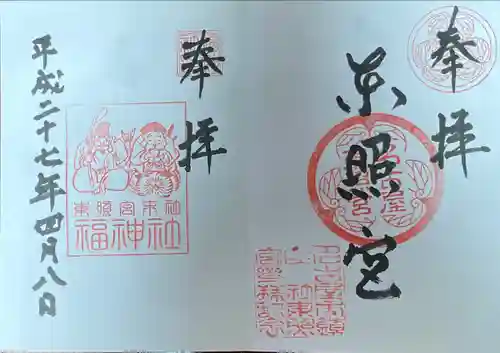 奉拝
東照宮
名古屋
東照宮
奉拝
東照宮末社
福神社
平成二十七年四月八日